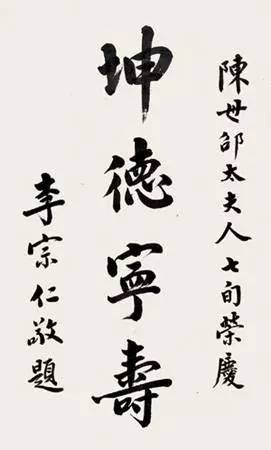 陳世郃太夫人七旬榮慶
坤德寧壽
李宗仁敬題